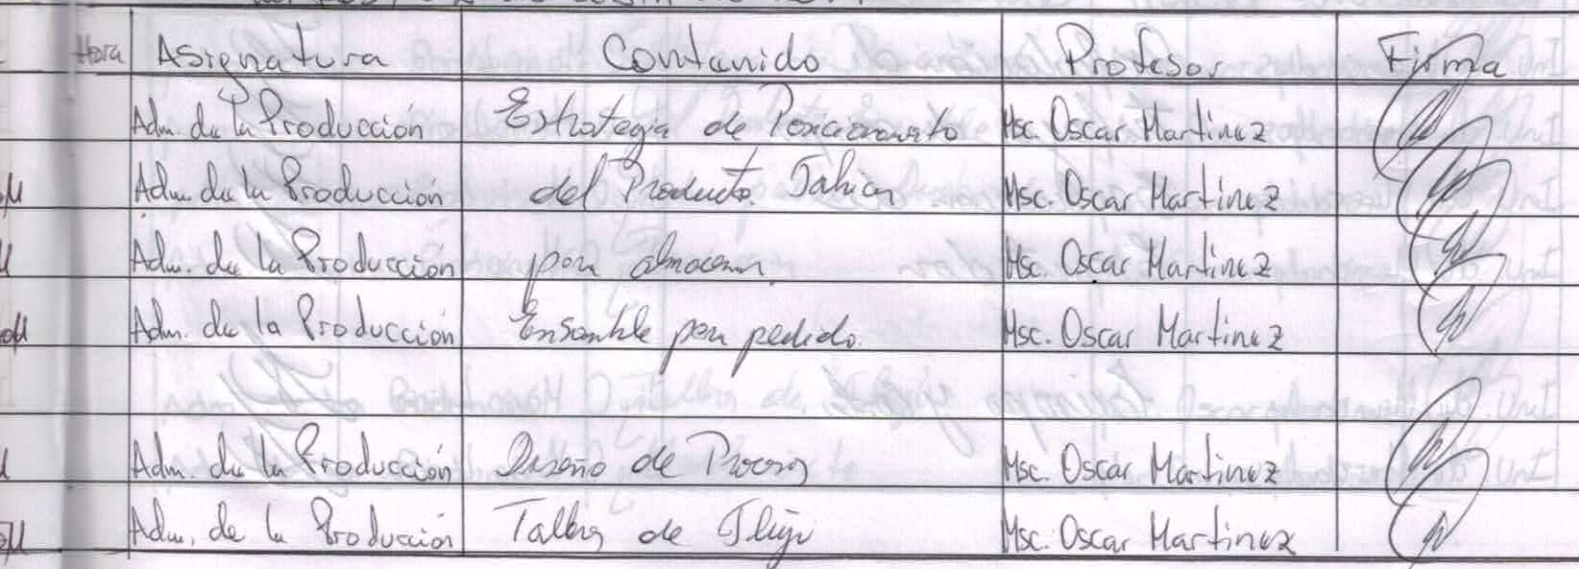 Hora Asignatura Contenido Profesor Firma
Adm. de la Producción Estrategia de Posicionamiento Msc. Oscar Martinez
Adm. de la Producción del Producto. Msc. Oscar Martinez
Adm. de la Producción para almacenar. Msc. Oscar Martinez
Adm. de la Producción Ensamble por pedido. Msc. Oscar Martinez
Adm. de la Producción Diseño de Proceso Msc. Oscar Martinez
Adm. de la Producción Taller de Flujo Msc. Oscar Martinez